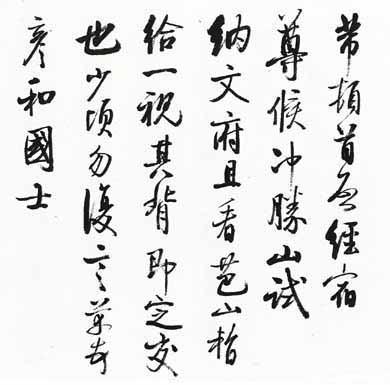 芾頓首启經宿
尊候沖勝山試
納文府且看芭山暫
給一視其背即定交
也少頃勿復言芾頓首
彥和國士